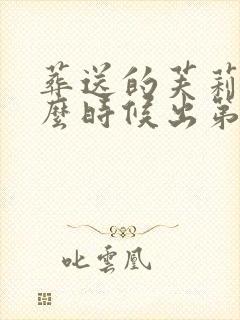 葬送的芙莉
麼時候出第
叱雲凰